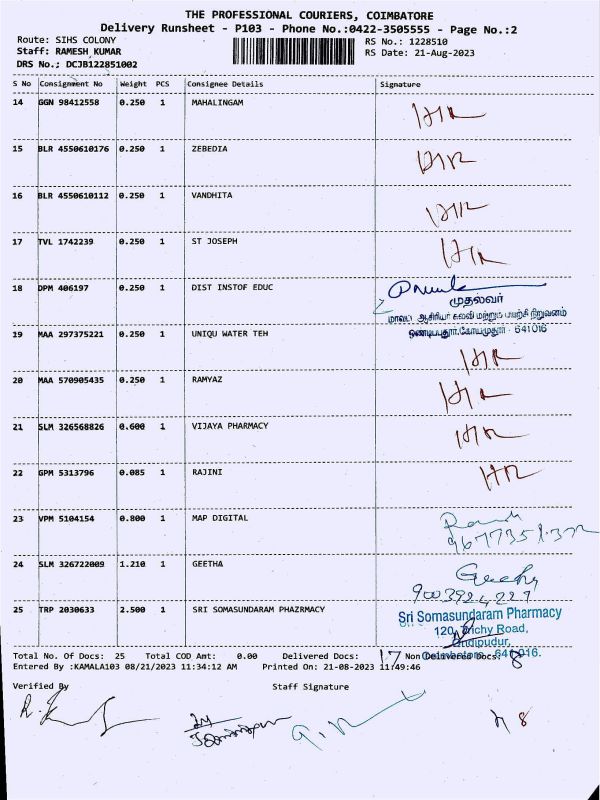 THE PROFESSIONAL COURIERS, COIMBATORE
Delivery Runsheet - P103 - Phone No.:0422-3505555 - Page No.:2
Route: SIHS COLONY
Staff: RAMESH KUMAR
DRS No.; DCJB122851002
RS No.: 1228510
RS Date: 21-Aug-2023
S No Consignment No Weight PCS Consignee Details Signature
14 GGN 98412558 0.250 1 MAHALINGAM
15 BLR 4550610176 0.250 1 ZEBEDIA
16 BLR 4550610112 0.250 1 VANDHITA
17 TVL 1742239 0.250 1 ST JOSEPH
18 DPM 406197 0.250 1 DIST INSTOF EDUC
முதல்வர்
மாவட்ட ஆசிரியர் கல்வி மற்றும் பயிற்சி நிறுவனம்
641016
19 MAA 297375221 0.250 1 UNIQU WATER TEH
20 MAA 570905435 0.250 1 RAMYAZ
21 SLM 326568826 0.600 1 VIJAYA PHARMACY
22 GPM 5313796 0.085 1 RAJINI
23 VPM 5104154 0.800 1 MAP DIGITAL
24 SLM 326722009 1.210 1 GEETHA
Geetha
9003924227
25 TRP 2030633 2.500 1 SRI SOMASUNDARAM PHAZRMACY
Sri Somasundaram Pharmacy
120, Trichy Road,
Ondipudur,
Coimbatore - 641016.
Total No. Of Docs: 25 Total COD Amt: 0.00 Delivered Docs: 17 Non Delivered Docs: 8
Entered By :KAMALA103 08/21/2023 11:34:12 AM Printed On: 21-08-2023 11:49:46
Verified By Staff Signature